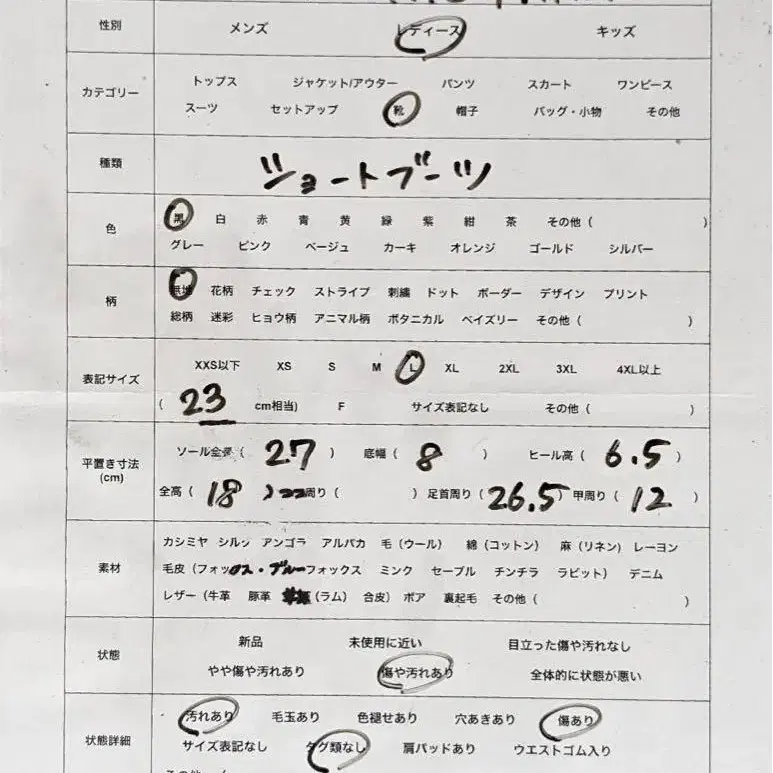 性別 メンズ レディース キッズ
カテゴリー トップス ジャケット/アウター パンツ スカート ワンピース
スーツ セットアップ 靴 帽子 バッグ・小物 その他
種類 ショートブーツ
色 黒 白 赤 青 黄 緑 紫 紺 茶 その他 ( )
グレー ピンク ベージュ カーキ オレンジ ゴールド シルバー
柄 無地 花柄 チェック ストライプ 刺繍 ドット ボーダー デザイン プリント
総柄 迷彩 ヒョウ柄 アニマル柄 ボタニカル ペイズリー その他 ( )
表記サイズ XXS以下 XS S M L XL 2XL 3XL 4XL以上
( 23 cm相当) F サイズ表記なし その他 ( )
平置き寸法 (cm) ソール全長 ( 27 ) 底幅 ( 8 ) ヒール高 ( 6.5 )
全高 ( 18 ) 周り ( ) 足首周り ( 26.5 ) 甲周り ( 12 )
素材 カシミヤ シルク アンゴラ アルパカ 毛 (ウール) 綿 (コットン) 麻 (リネン) レーヨン
毛皮 (フォックス・ブルーフォックス ミンク セーブル チンチラ ラビット) デニム
レザー (牛革 豚革 (ラム) 合皮) ボア 裏起毛 その他 ( )
状態 新品 未使用に近い 目立った傷や汚れなし
やや傷や汚れあり 傷や汚れあり 全体的に状態が悪い
状態詳細 汚れあり 毛玉あり 色褪せあり 穴あきあり 傷あり
サイズ表記なし タグ類なし 肩パッドあり ウエストゴム入り